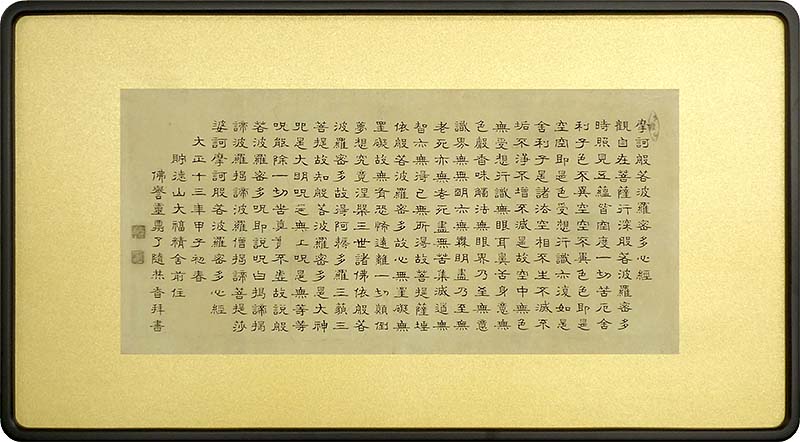 摩訶般若波羅密多心經
觀自在菩薩行深般若波羅密多
時照見五蘊皆空度一切苦厄舍
利子色不異空空不異色色即是
空空即是色受想行識亦復如是
舍利子是諸法空相不生不滅不
垢不淨不增不減是故空中無色
無受想行識無眼耳鼻舌身意無
色聲香味觸法無眼界乃至無意
識界無無明亦無無明盡乃至無
老死亦無老死盡無苦集滅道無
智亦無得已無所得故菩提薩埵
依般若波羅密多故心無罣礙無
罣礙故無有恐怖遠離一切顛倒
夢想究竟涅槃三世諸佛依般若
波羅密多故得阿耨多羅三藐三
菩提故知般若波羅密多是大神
呪是大明呪是無上呪是無等等
呪能除一切苦真實不虛故說般
若波羅密多呪即說呪曰揭諦揭
諦波羅揭諦波羅僧揭諦菩提莎
婆訶摩訶般若波羅密多心經
大正十三年甲子初春
貯遠山大福精舍前住
佛譽靈 了隨焚香拜書